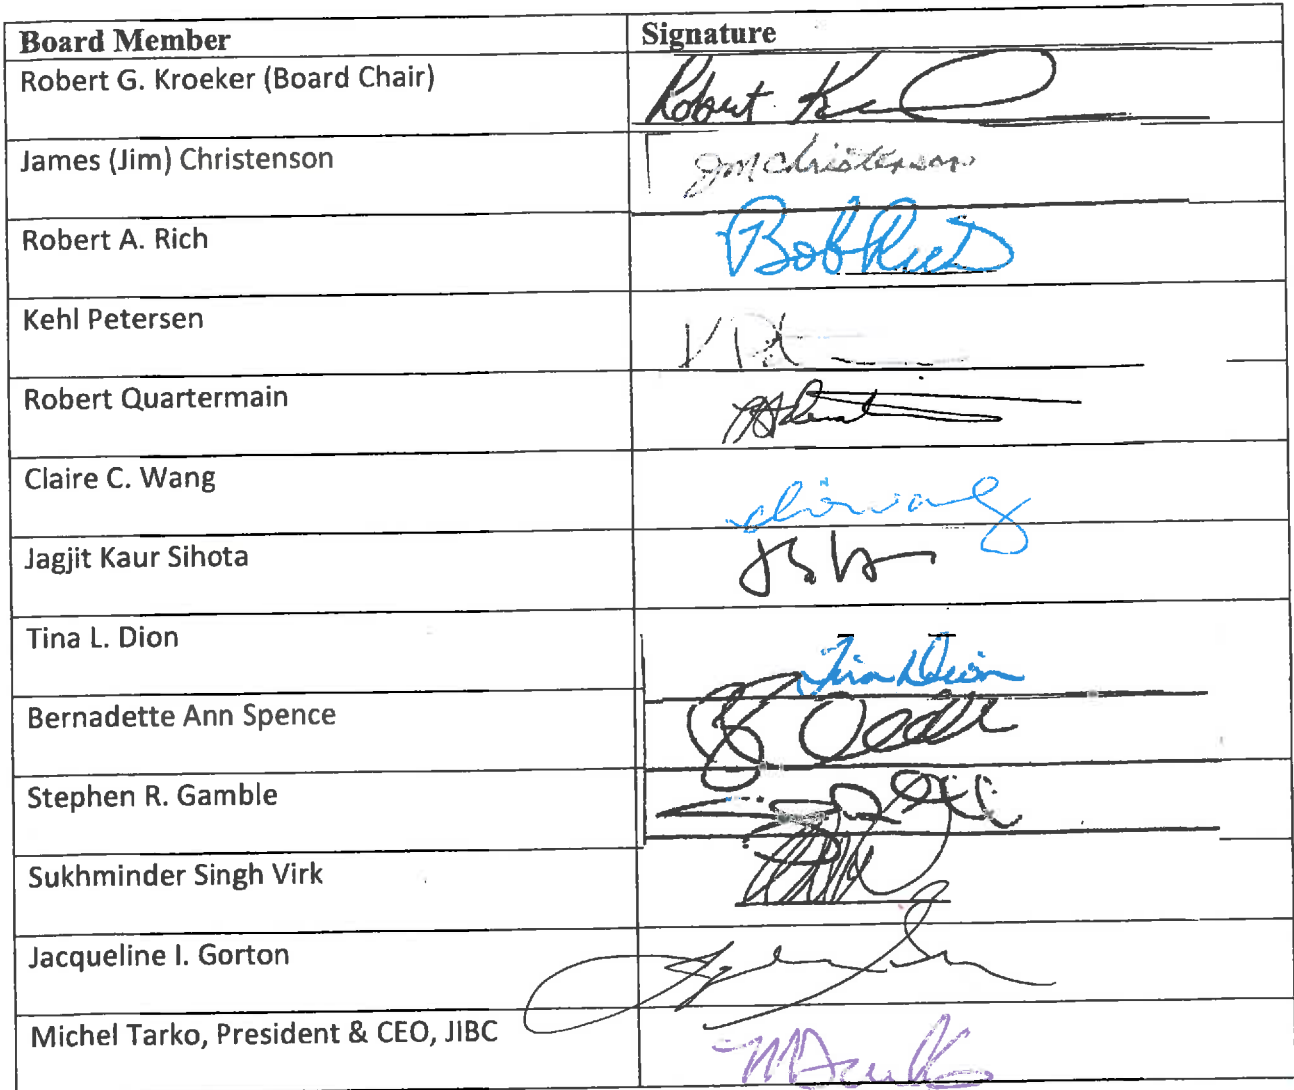 Board Member Signature
Robert G. Kroeker (Board Chair) Robert
James (Jim) Christenson JM Christenson
Robert A. Rich Bob Rich
Kehl Petersen
Robert Quartermain
Claire C. Wang
Jagjit Kaur Sihota
Tina L. Dion Tina Dion
Bernadette Ann Spence
Stephen R. Gamble
Sukhminder Singh Virk
Jacqueline I. Gorton
Michel Tarko, President & CEO, JIBC